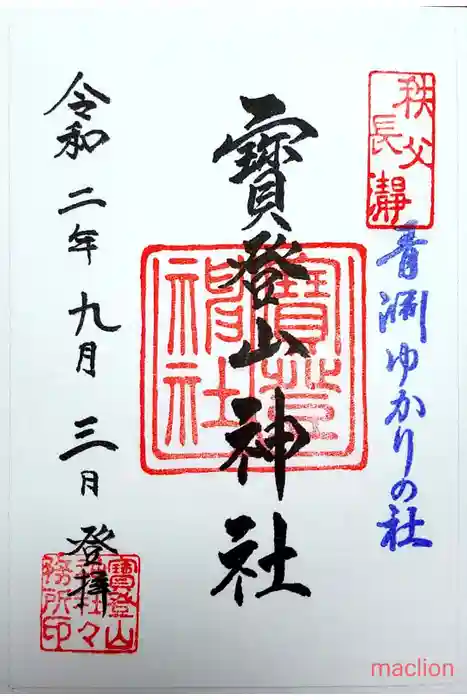 秩父
長瀞
青淵ゆかりの社
寳登山神社
寳登
神社
令和二年九月三日
登拝
寳登山
神社々
務所印
maclion